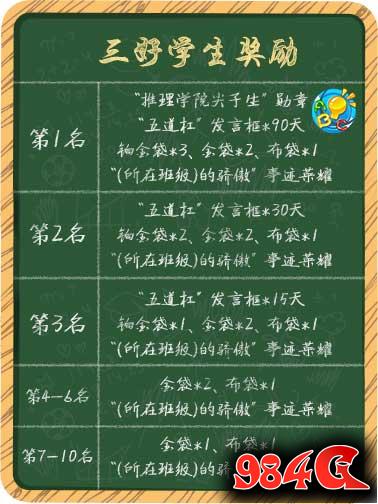 三好学生奖励
第1名
"推理学院尖子生"勋章
"五道杠"发言框*90天
铂金袋*3、金袋*2、布袋*1
"(所在班级)的骄傲"事迹荣耀
第2名
"五道杠"发言框*30天
铂金袋*2、金袋*2、布袋*1
"(所在班级)的骄傲"事迹荣耀
第3名
"五道杠"发言框*15天
铂金袋*1、金袋*2、布袋*1
"(所在班级)的骄傲"事迹荣耀
第4-6名
金袋*2、布袋*1
"(所在班级)的骄傲"事迹荣耀
第7-10名
金袋*1、布袋*1
"(所在班级)的骄傲"
984G